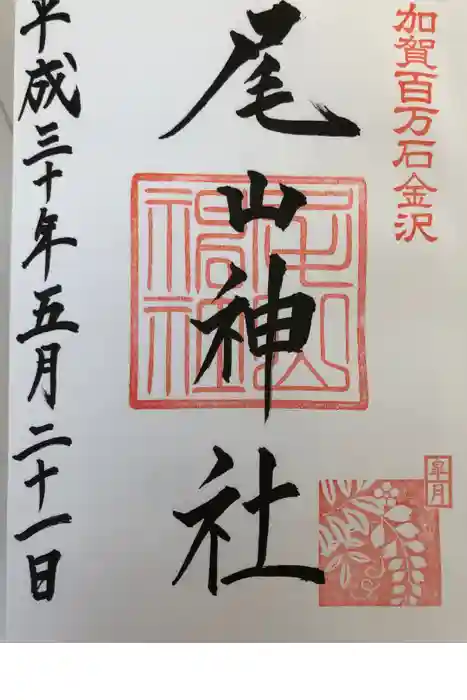 加賀百万石金沢
皐月
尾山神社
平成三十年五月二十一日